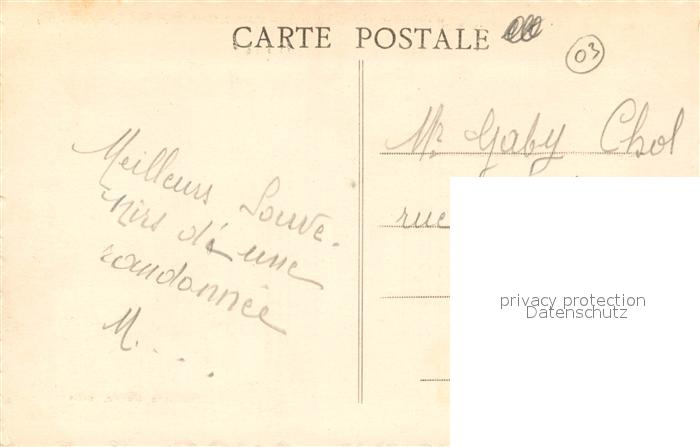 CARTE POSTALE
03
Meilleurs Souve-
nirs d'une
randonnée
M. . . .
Mr Gaby Chol
rue
privacy protection
Datenschutz